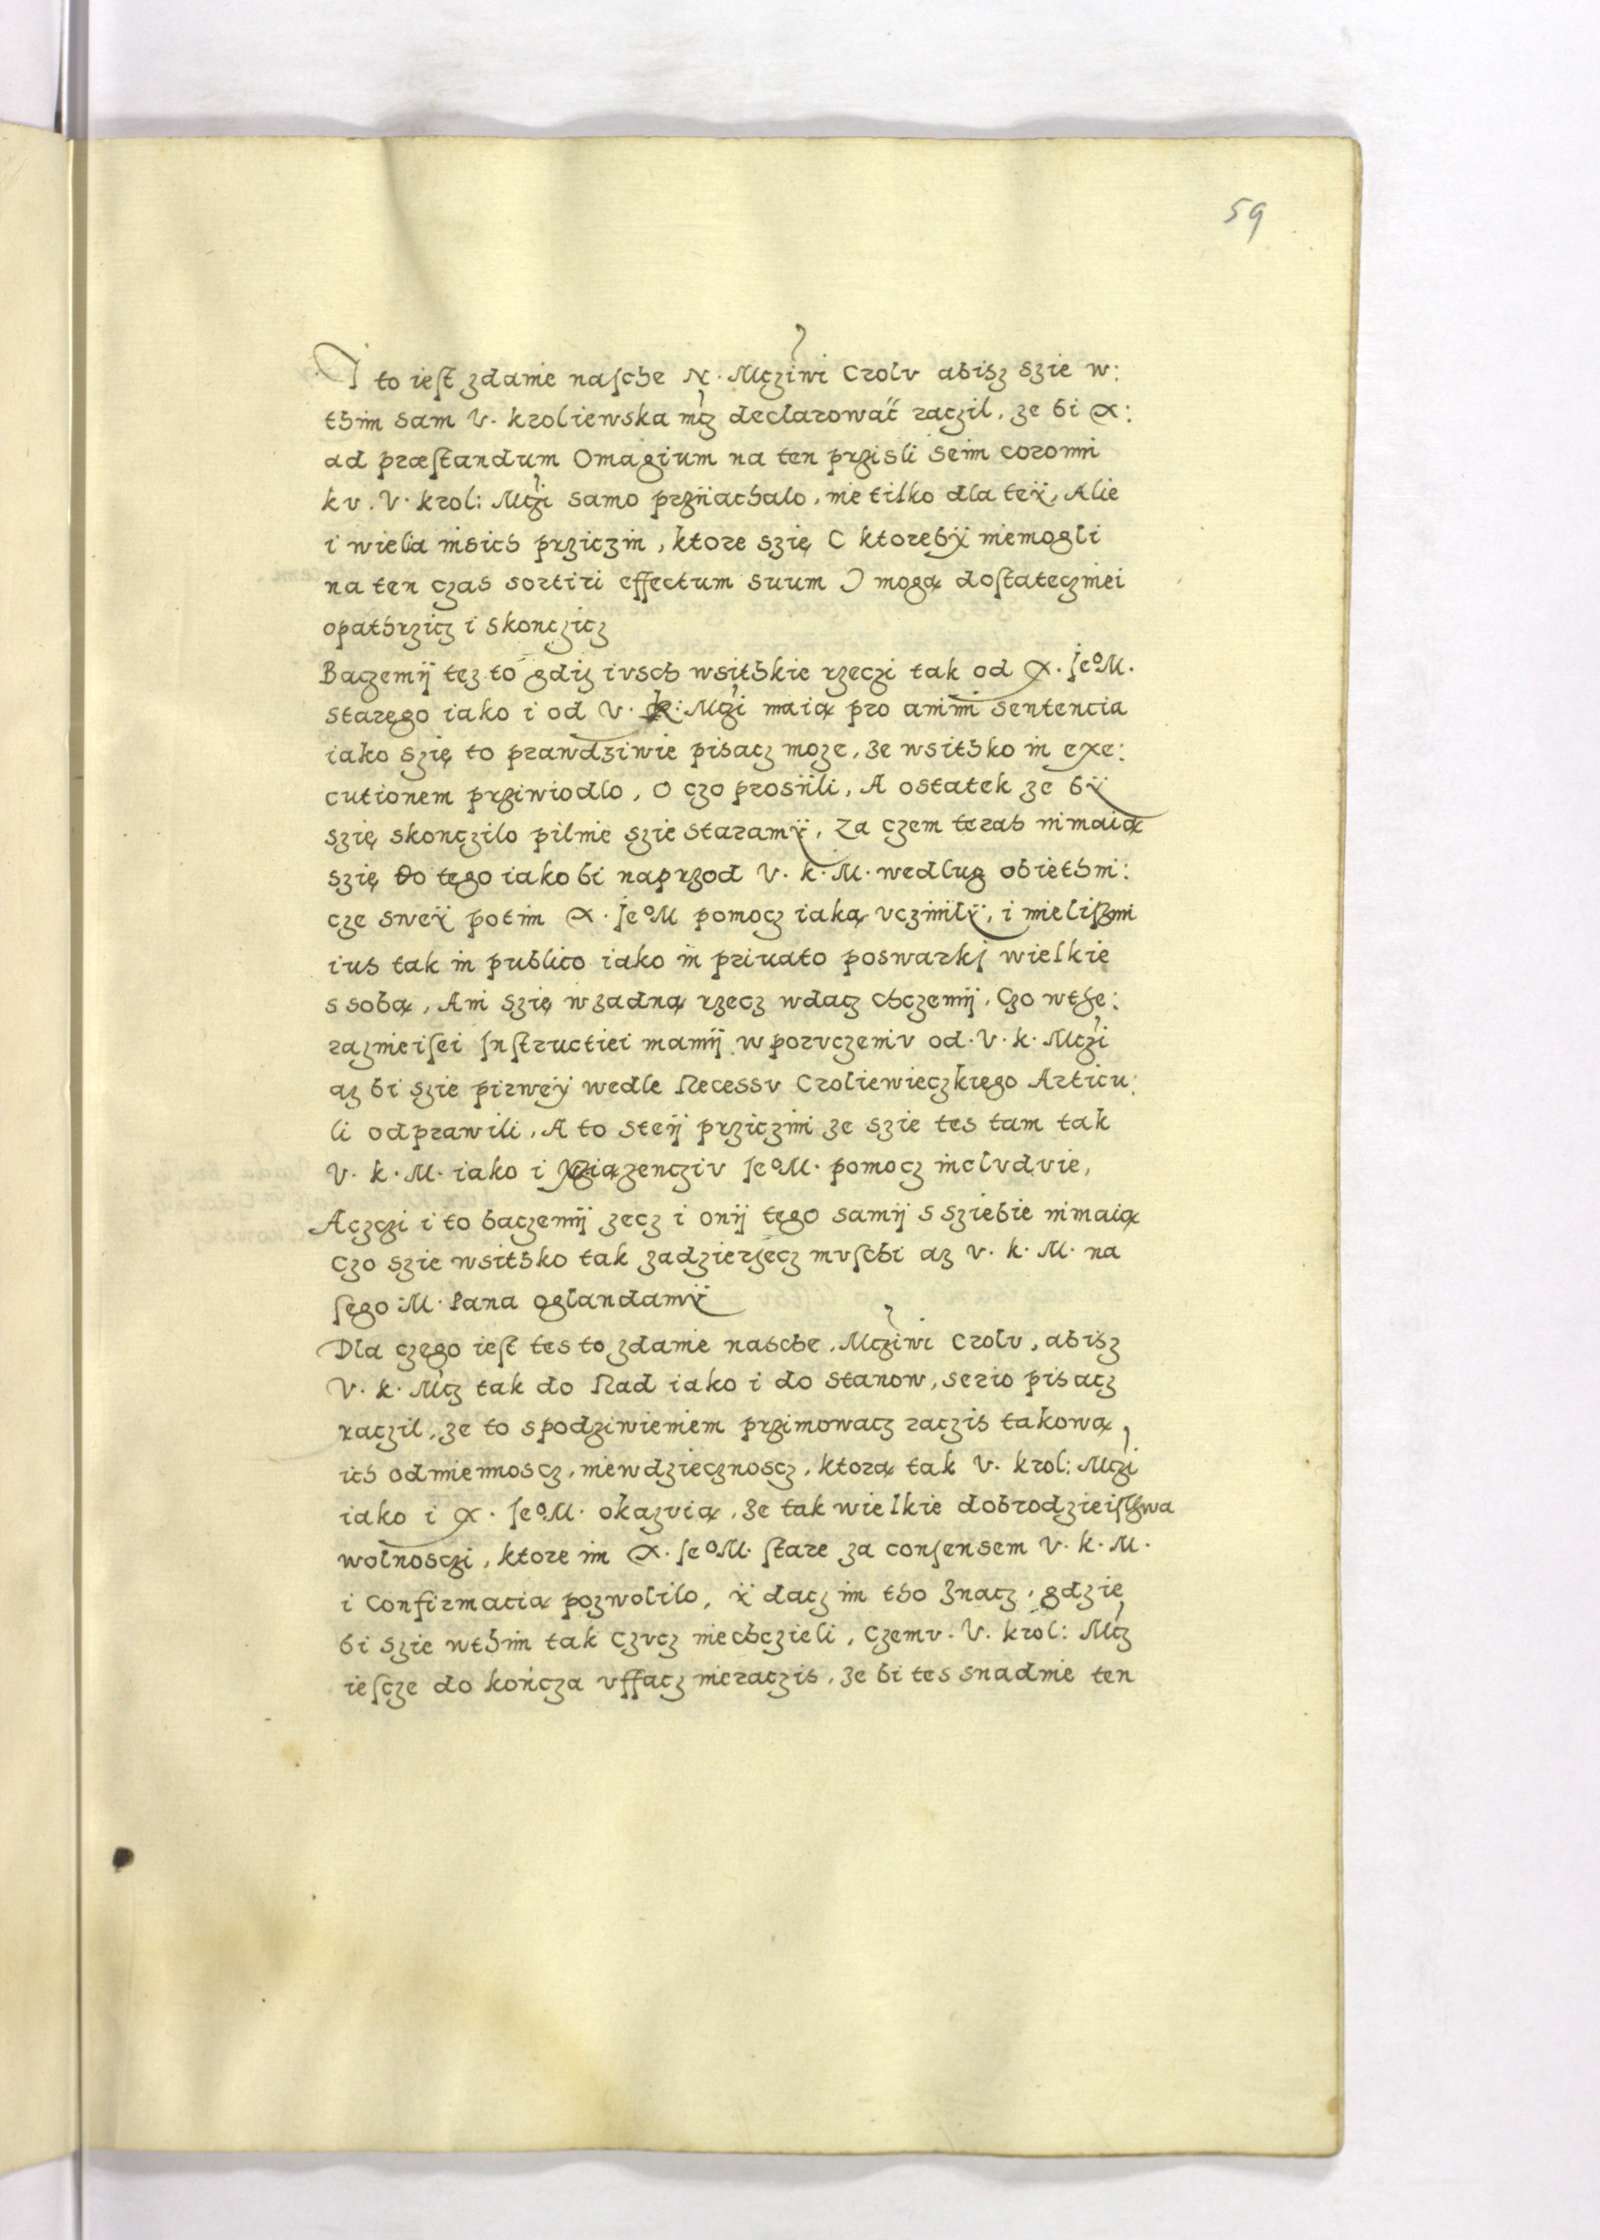 59
I to iest zdanie nasche N. Mcziwi Crolu abisz szie w:
thim sam V. kroliewska mcz declarowač raczil, ze bi X:
ad præstandum Omagium na ten przisli seim coronni
ku. V. krol: Mczi samo prziiachalo, nie tilko dla teÿ, Alie
i wiela insich prziczin, ktore szię C ktorebÿ niemogli
na ten czas sortiri effectum suum Ɔ mogą dostatecznei
opathrzicz i skonczicz
Baczemÿ tęz to gdiz iusch wsithkie rzeczi tak od X. Je⁰M.
staręgo iako i od V. K: Mczi maią pro animi sententia
iako szię to prawdziwie pisacz moze, ze wsithko in exe:
cutionem prziwiodlo, O czo prosÿli, A ostatek ze bÿ
szię skonczilo pilnie szie staramÿ, Za czem terah nimaią
szię do tęgo iako bi naprzod V. k. M. wedlug obiethni:
cze sweÿ potim X. Je⁰M pomocz iaką uczinilÿ, i mieliszmi
ius tak in publico iako in priuato poswarki wielkie
s sobą, Ani szię w zadną rzecz wdacz chczemÿ, Czo wthe:
raznieisei Instructiei mamÿ w poruczeniu od. V. k. Mczi
az bi szie pirwęÿ wedle Recessu Croliewieczkięgo Articu:
li odprawili, A to steÿ prziczini ze szie tes tam tak
V. k. M. iako i Xziązencziu Je⁰M. pomocz includuie,
Aczczi i to baczemÿ zecz i onÿ tęgo samÿ s sziebie nimaią
Czo szie wsithko tak zadzierzecz muschi az V. k. M. na
sęgo M. Pana oglandamÿ
Dla częgo iest tes to zdanie nasche, Mcziwi Crolu, abisz
V. k. Mcz tak do Rad iako i do stanow, serio pisacz
raczil, ze to spodziwieniem przimowacz raczis takową
ich odmiennoscz, niewdziecznoscz, ktorą tak V. krol: Mczi
iako i X. Je⁰M. okazuią, Ze tak wielkie dobrodzieisthwa
wolnosczi, ktore im X. Je⁰M. stare za consensem V. k. M.
i Confirmacią pozwolilo, ÿ dacz im tho Znacz, gdzie
bi szie wthim tak czucz niechczieli, Czemu. V. krol: Mcz
iescze do kończa uffacz nieraczis, Ze bi tes snadnie ten